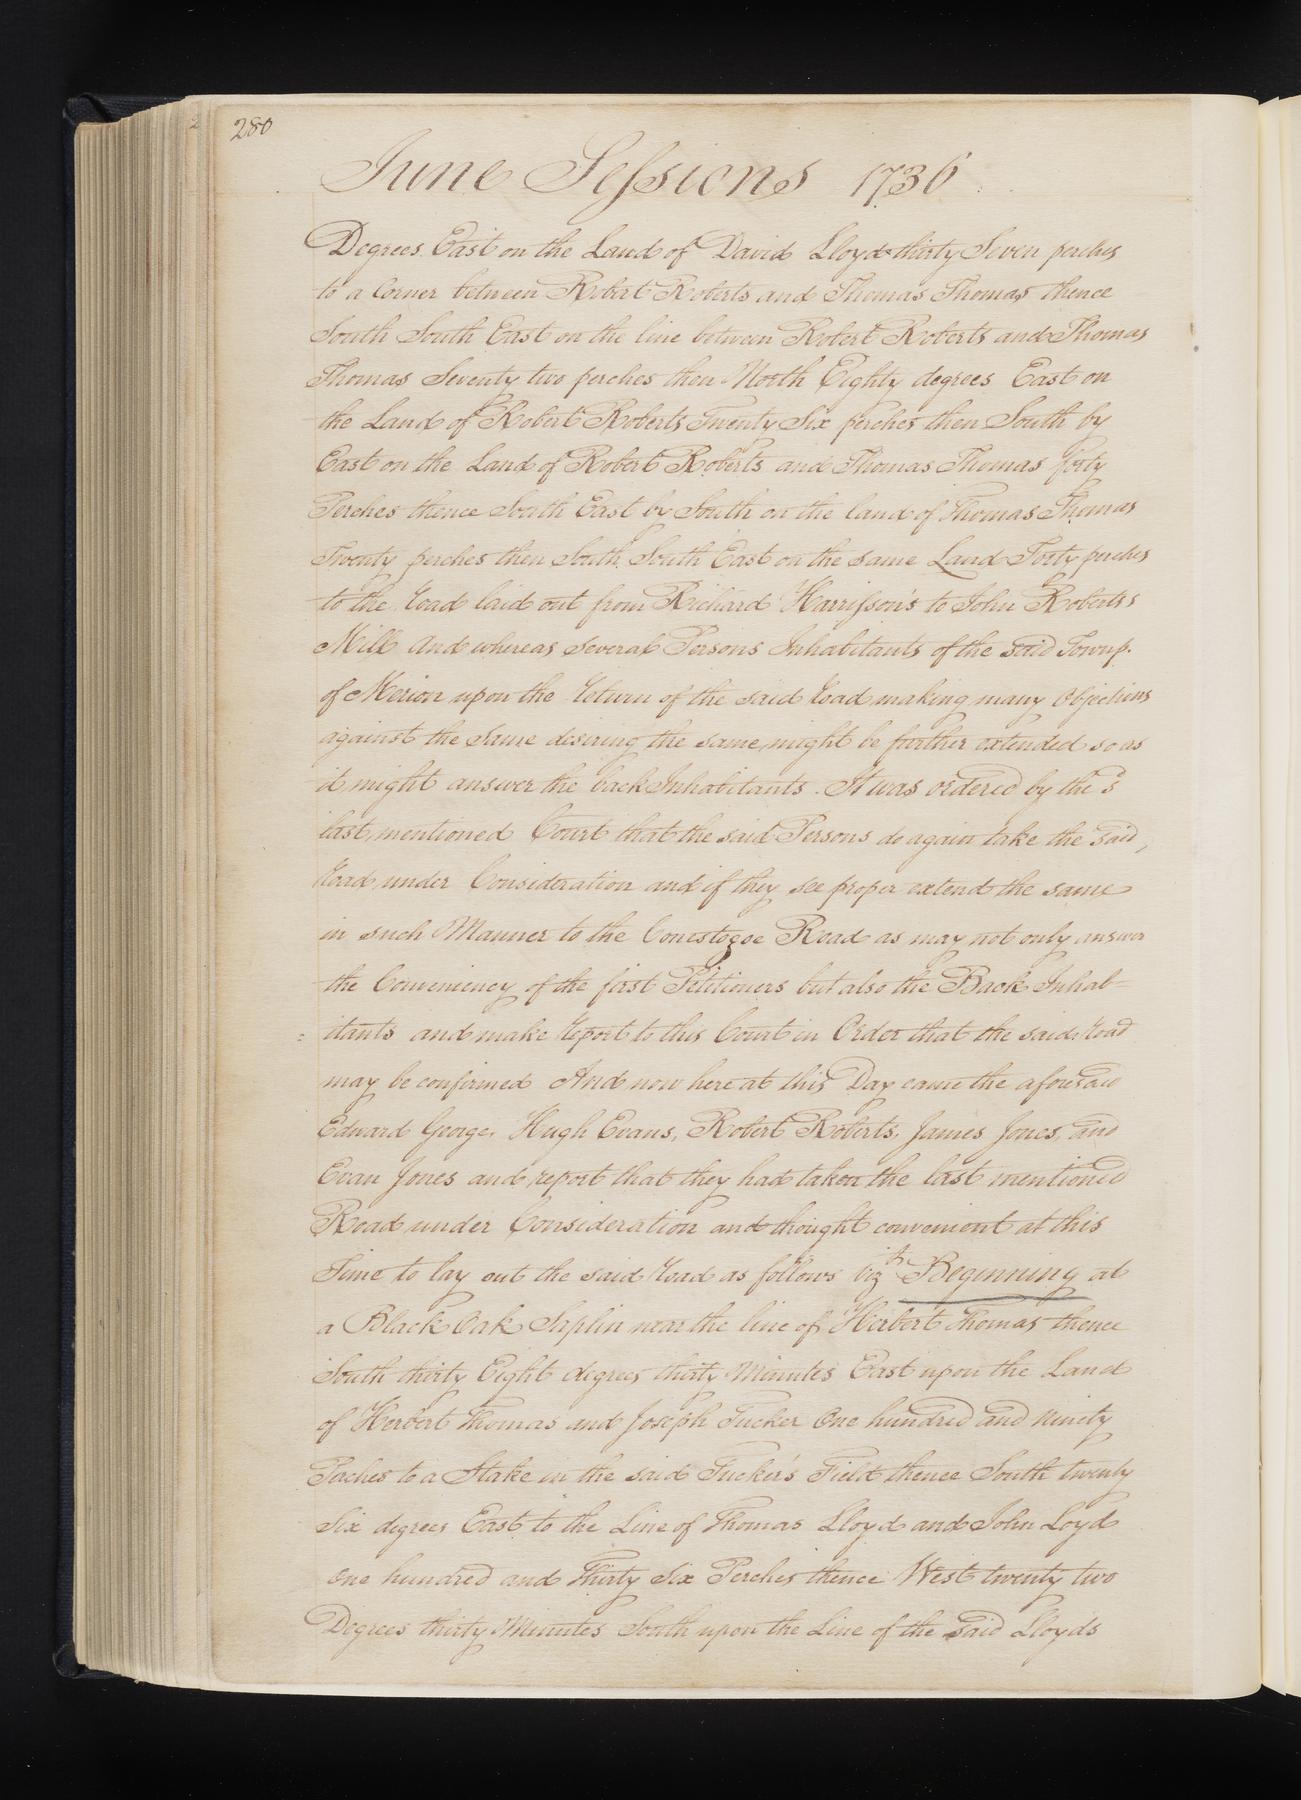 280
June Sessions 1736
Degrees East on the Land of David Lloyd thirty Seven perches
to a Corner between Robert Roberts and Thomas Thomas thence
South South East on the line between Robert Roberts and Thomas
Thomas Seventy two perches then North Eighty degrees East on
the Land of Robert Roberts Twenty Six perches then South by
East on the Land of Robert Roberts and Thomas Thomas forty
Perches thence South East by South on the land of Thomas Thomas
Twenty perches then South South East on the same Land Forty perches
to the road laid out from Richard Harrisson's to John Roberts's
Mill And whereas several Persons Inhabitants of the said Townp.
of Merion upon the return of the said road making many Objections
against the same desiring the same might be further extended so as
it might answer the back Inhabitants. It was ordered by the s
last mentioned Court that the said Persons do again take the said,
road under Consideration and if they see proper extend the same
in such Manner to the Conestogoe Road as may not only answer
the Conveniency of the first Petitioners but also the Back Inhab-
= itants and make report to this Court in Order that the said road
may be confirmed And now here at this Day came the aforesaid
Edward George, Hugh Evans, Robert Roberts, James Jones, and
Evan Jones and report that they had taken the last mentioned
Road under Consideration and thought convenient at this
Time to lay out the said road as follows viz Beginning at
a Black Oak Saplin near the line of Herbert Thomas thence
South thirty Eight degrees thirty Minutes East upon the Land
of Herbert Thomas and Joseph Tucker One hundred and Ninety
Paches to a Stake in the said Tucker's Field thence South twenty
Six degrees East to the Line of Thomas Lloyd and John Loyd
One hundred and Thirty Six Perches thence West twenty two
Degrees thirty Minutes South upon the Line of the said Lloyds